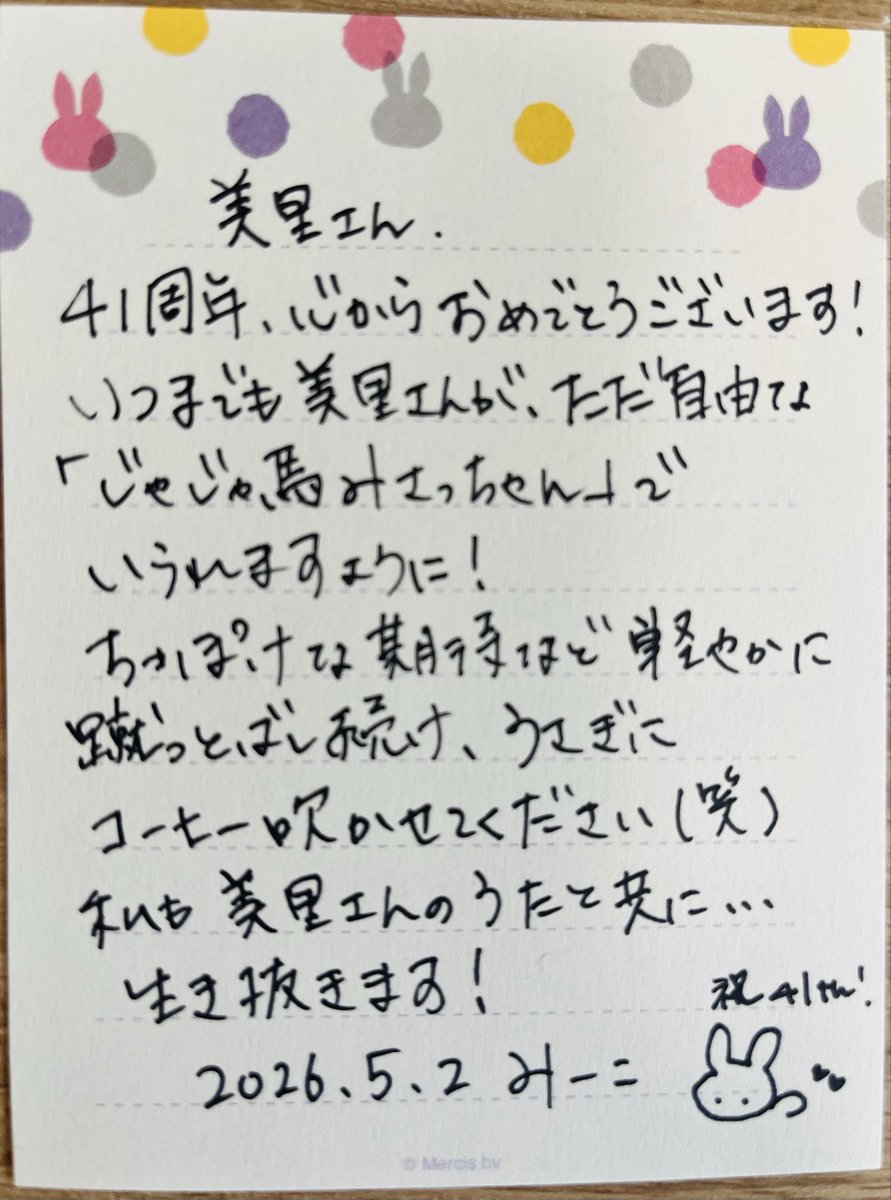 美里さん.
41周年、心からおめでとうございます!
いつまでも美里さんが、ただ自由な
「じゃじゃ馬みさっちゃん」で
いられますように!
ちっぽけな期待など軽やかに
蹴っとばし続け、うさぎに
コーヒー吹かせてください(笑)
私も美里さんのうたと共に...
生き抜きます!
祝41th!
2026.5.2 みーこ
© Mercis bv